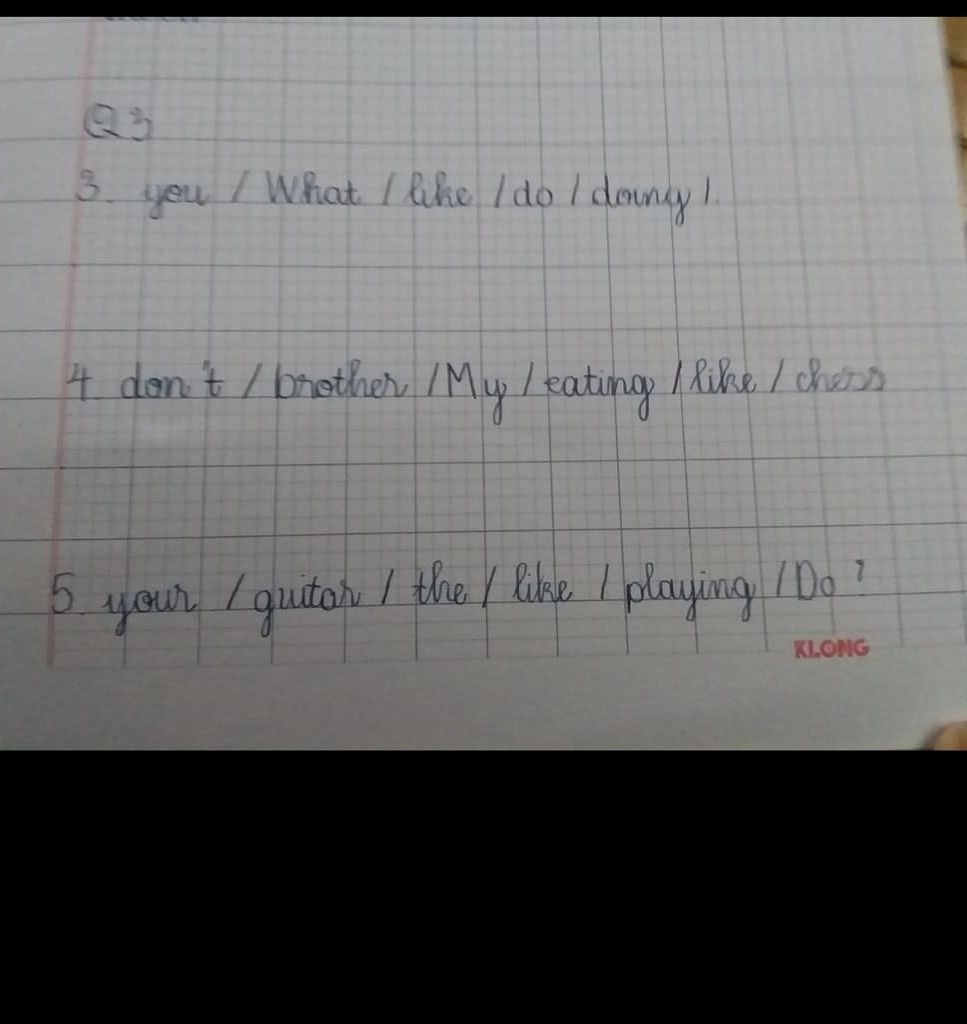 Q3
3. you / What / like / do / doing /.
4 don't / brother / My / eating / like /
5. your / guitar / the / like / playing / Do ?
KLONG